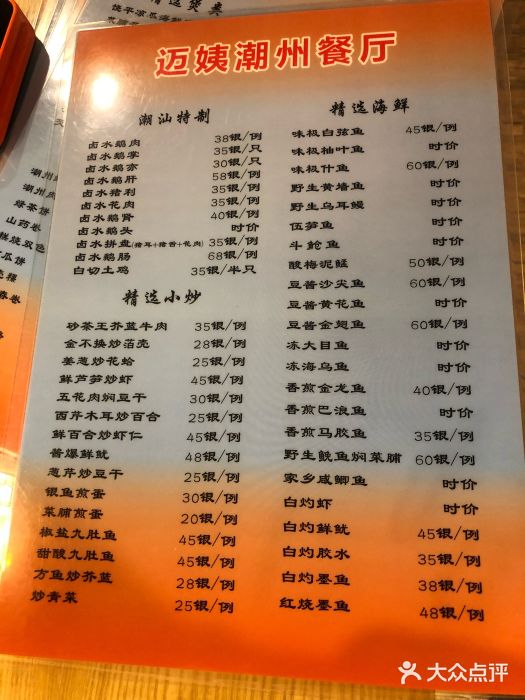 迈姨潮州餐厅
潮汕特制
卤水鹅肉 38银/例
卤水鹅掌 35银/只
卤水鹅亦 30银/只
卤水鹅肝 58银/例
卤水猪利 35银/例
卤水花肉 35银/例
卤水鹅肾 40银/例
卤水鹅头 时价
卤水拼盘(猪耳+猪舌+花肉) 35银/例
卤水鹅肠 68银/例
白切土鸡 35银/半只
精选小炒
砂茶王芥蓝牛肉 35银/例
金不换炒箔壳 28银/例
姜葱炒花蛤 25银/例
鲜芦笋炒虾 45银/例
五花肉焖豆干 30银/例
西芹木耳炒百合 25银/例
鲜百合炒虾仁 45银/例
酱爆鲜鱿 48银/例
葱芹炒豆干 25银/例
银鱼煎蛋 30银/例
菜脯煎蛋 20银/例
椒盐九肚鱼 45银/例
甜酸九肚鱼 45银/例
方鱼炒芥蓝 28银/例
炒青菜 25银/例
精选海鲜
味极白弦鱼 45银/例
味极柚叶鱼 时价
味极什鱼 60银/例
野生黄墙鱼 时价
野生乌耳鳗 时价
伍笋鱼 时价
斗鲳鱼 时价
酸梅泥鯭 50银/例
豆酱沙尖鱼 60银/例
豆酱黄花鱼 时价
豆酱金翅鱼 60银/例
冻大目鱼 时价
冻海乌鱼 时价
香煎金龙鱼 40银/例
香煎巴浪鱼 时价
香煎马胶鱼 35银/例
野生鮸鱼焖菜脯 60银/例
家乡咸鲫鱼 时价
白灼虾 时价
白灼鲜鱿 45银/例
白灼胶水 35银/例
白灼墨鱼 38银/例
红烧墨鱼 48银/例
绿茶饼
大众点评